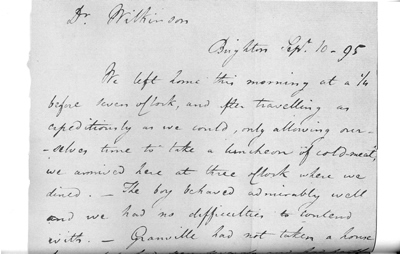 Dr. Wilkinson
Brighton Sept. 10 - 95
We left home this morning at a 1/4
before seven o'clock, and after travelling as
expeditiously as we could, only allowing our-
-selves time to take a luncheon of cold-meat,
we arrived here at three o'clock where we
dined. — The boy behaved admirably well
and we had no difficulties to contend
with. — Granville had not taken a house